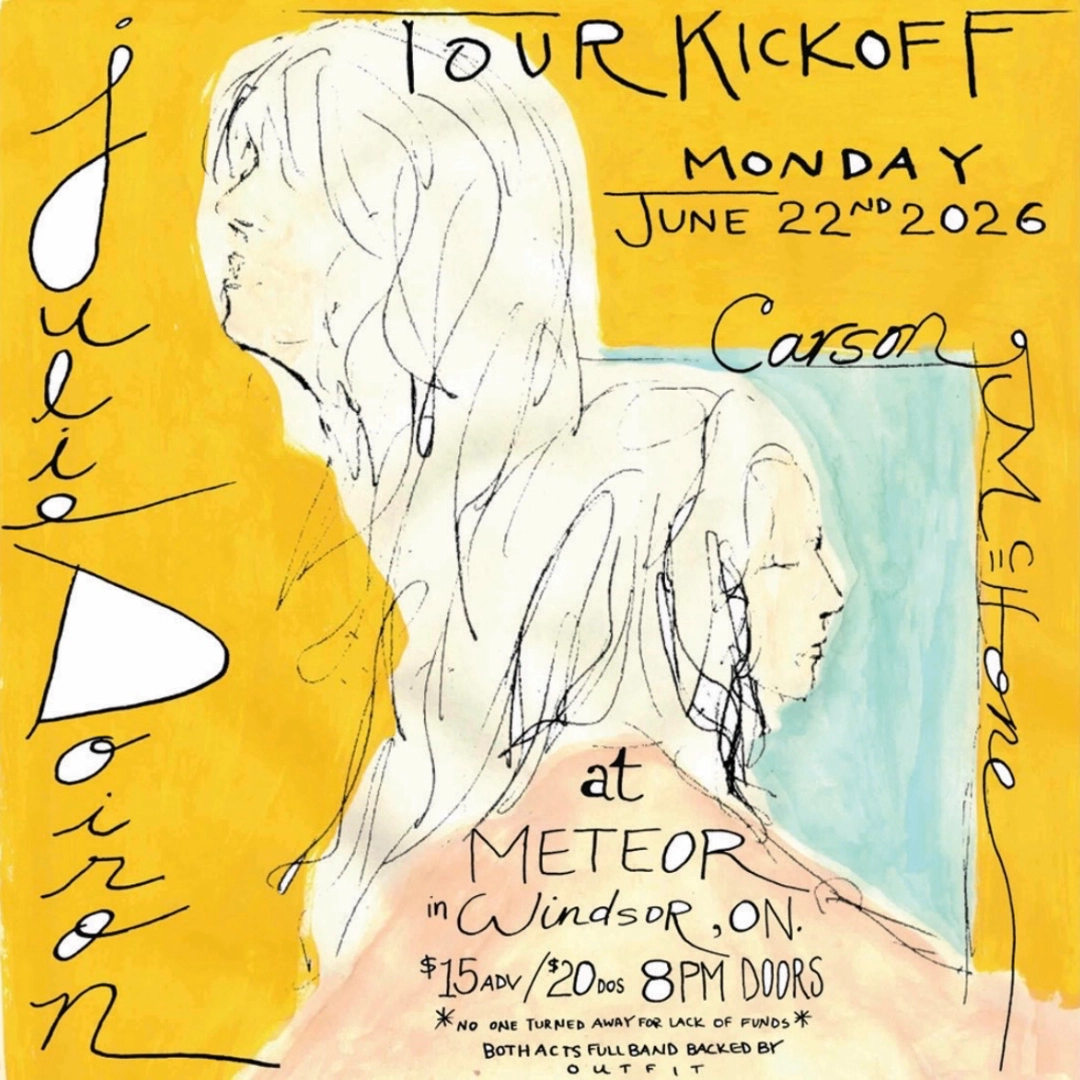 TOUR KICKOFF
MONDAY
JUNE 22ND 2026
Julie Doiron
Carson
JUMEHONE
at
METEOR
in WindsOR, ON.
$15 ADV / $20 DOS 8PM DOORS
*NO ONE TURNED AWAY FOR LACK OF FUNDS*
BOTH ACTS FULL BAND BACKED BY
OUTFIT